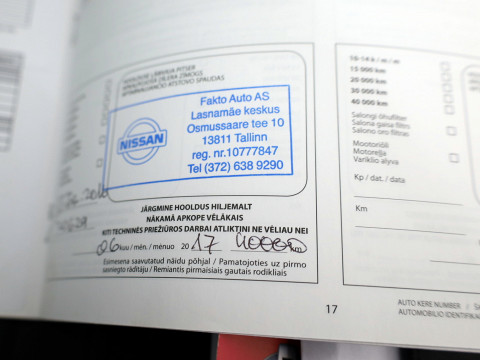 HOOLDUSE LÄBIVIIJA PITSER
Fakto Auto AS
Lasnamäe keskus
Osmussaare tee 10
13811 Tallinn
reg. nr.10777847
Tel (372) 638 9290
NISSAN
JÄRGMINE HOOLDUS HILJEMALT
NĀKAMĀ APKOPE VĒLĀKAIS
KITI TECHNINĖS PRIEŽIŪROS DARBAI ATLIKTINI NE VĖLIAU NEI
06 kuu / mēn. / mėnuo 2017 40000 km
Esimesena saavutatud näidu põhjal / Pamatojoties uz pirmo
sasniegto rādītāju / Remiantis pirmaisiais gautais rodikliais
17
15 000 km
20 000 km
30 000 km
40 000 km
Salongi õhufilter
Salona gaisa filtrs
Salono oro filtras
Mootoriõli
Motoreļļa
Variklio alyva
Kp / dat. / data
Km
AUTO KERE NUMBER /
AUTOMOBILIO